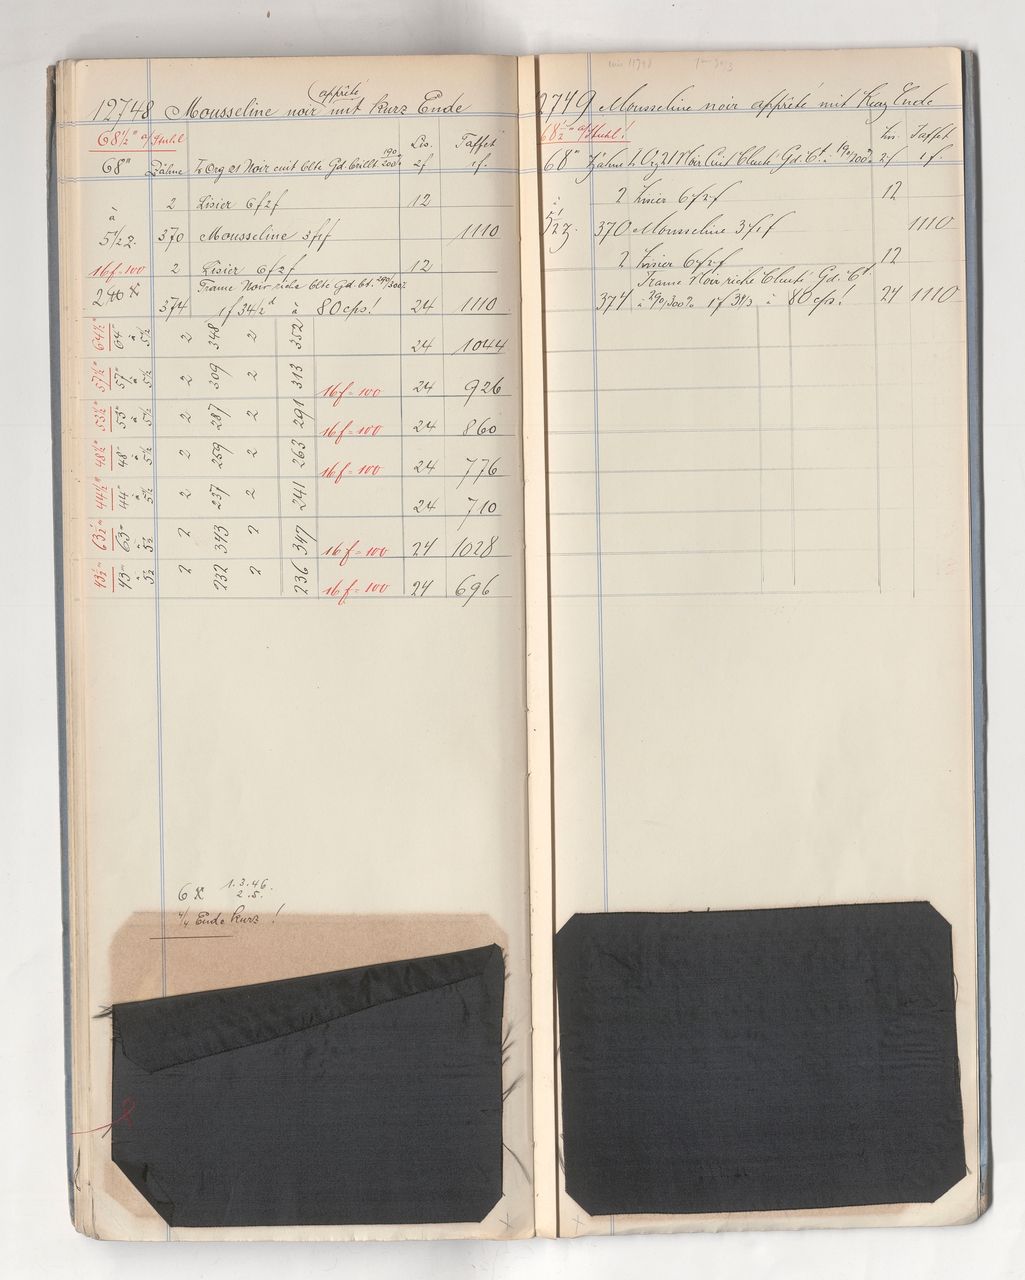 12748 Mousseline noir apprêté mit kurz Ende
68½" a/Stuhl Lis. Taffet
68" Zähne Org 21 Noir cuit Clte Gd. brillt 190/200% 2f 1f.
2 Lisier 6f2f 12
à
5½ Z. 370 Mousseline 3f1f 1110
16f=100 2 Lisier 6f2f 12
Trame Noir riche Clte Gd. Ct. 290/300%
240 X 374 1f 34½d à 80 cps! 24 1110
64½" 64" à 5½ 2 348 2 352 24 1044
57½" 57" à 5½ 2 309 2 313 16f=100 24 926
53½" 53" à 5½ 2 287 2 291 16f=100 24 860
48½" 48" à 5½ 2 259 2 263 16f=100 24 776
44½" 44" à 5½ 2 237 2 241 24 710
63½" 63" à 5½ 2 343 2 347 16f=100 24 1028
43½" 43" à 5½ 2 232 2 236 16f=100 24 696
6 X 1.3.46.
2.5.
4/4 Ende kurz!
2749 Mousseline noir apprêté mit Kurz Ende
68½" a/Stuhl! Lis. Taffet
68" Zähne Org 21 Noir Cuit Gd. Ct. à 190/200% 2f 1f.
2 Lisier 6f2f 12
à
5½ Z. 370 Mousseline 3f1f 1110
2 Lisier 6f2f 12
Trame Noir riche Gd. Ct.
374 à 290/300% 1f 31/3 à 80 cps! 24 1110